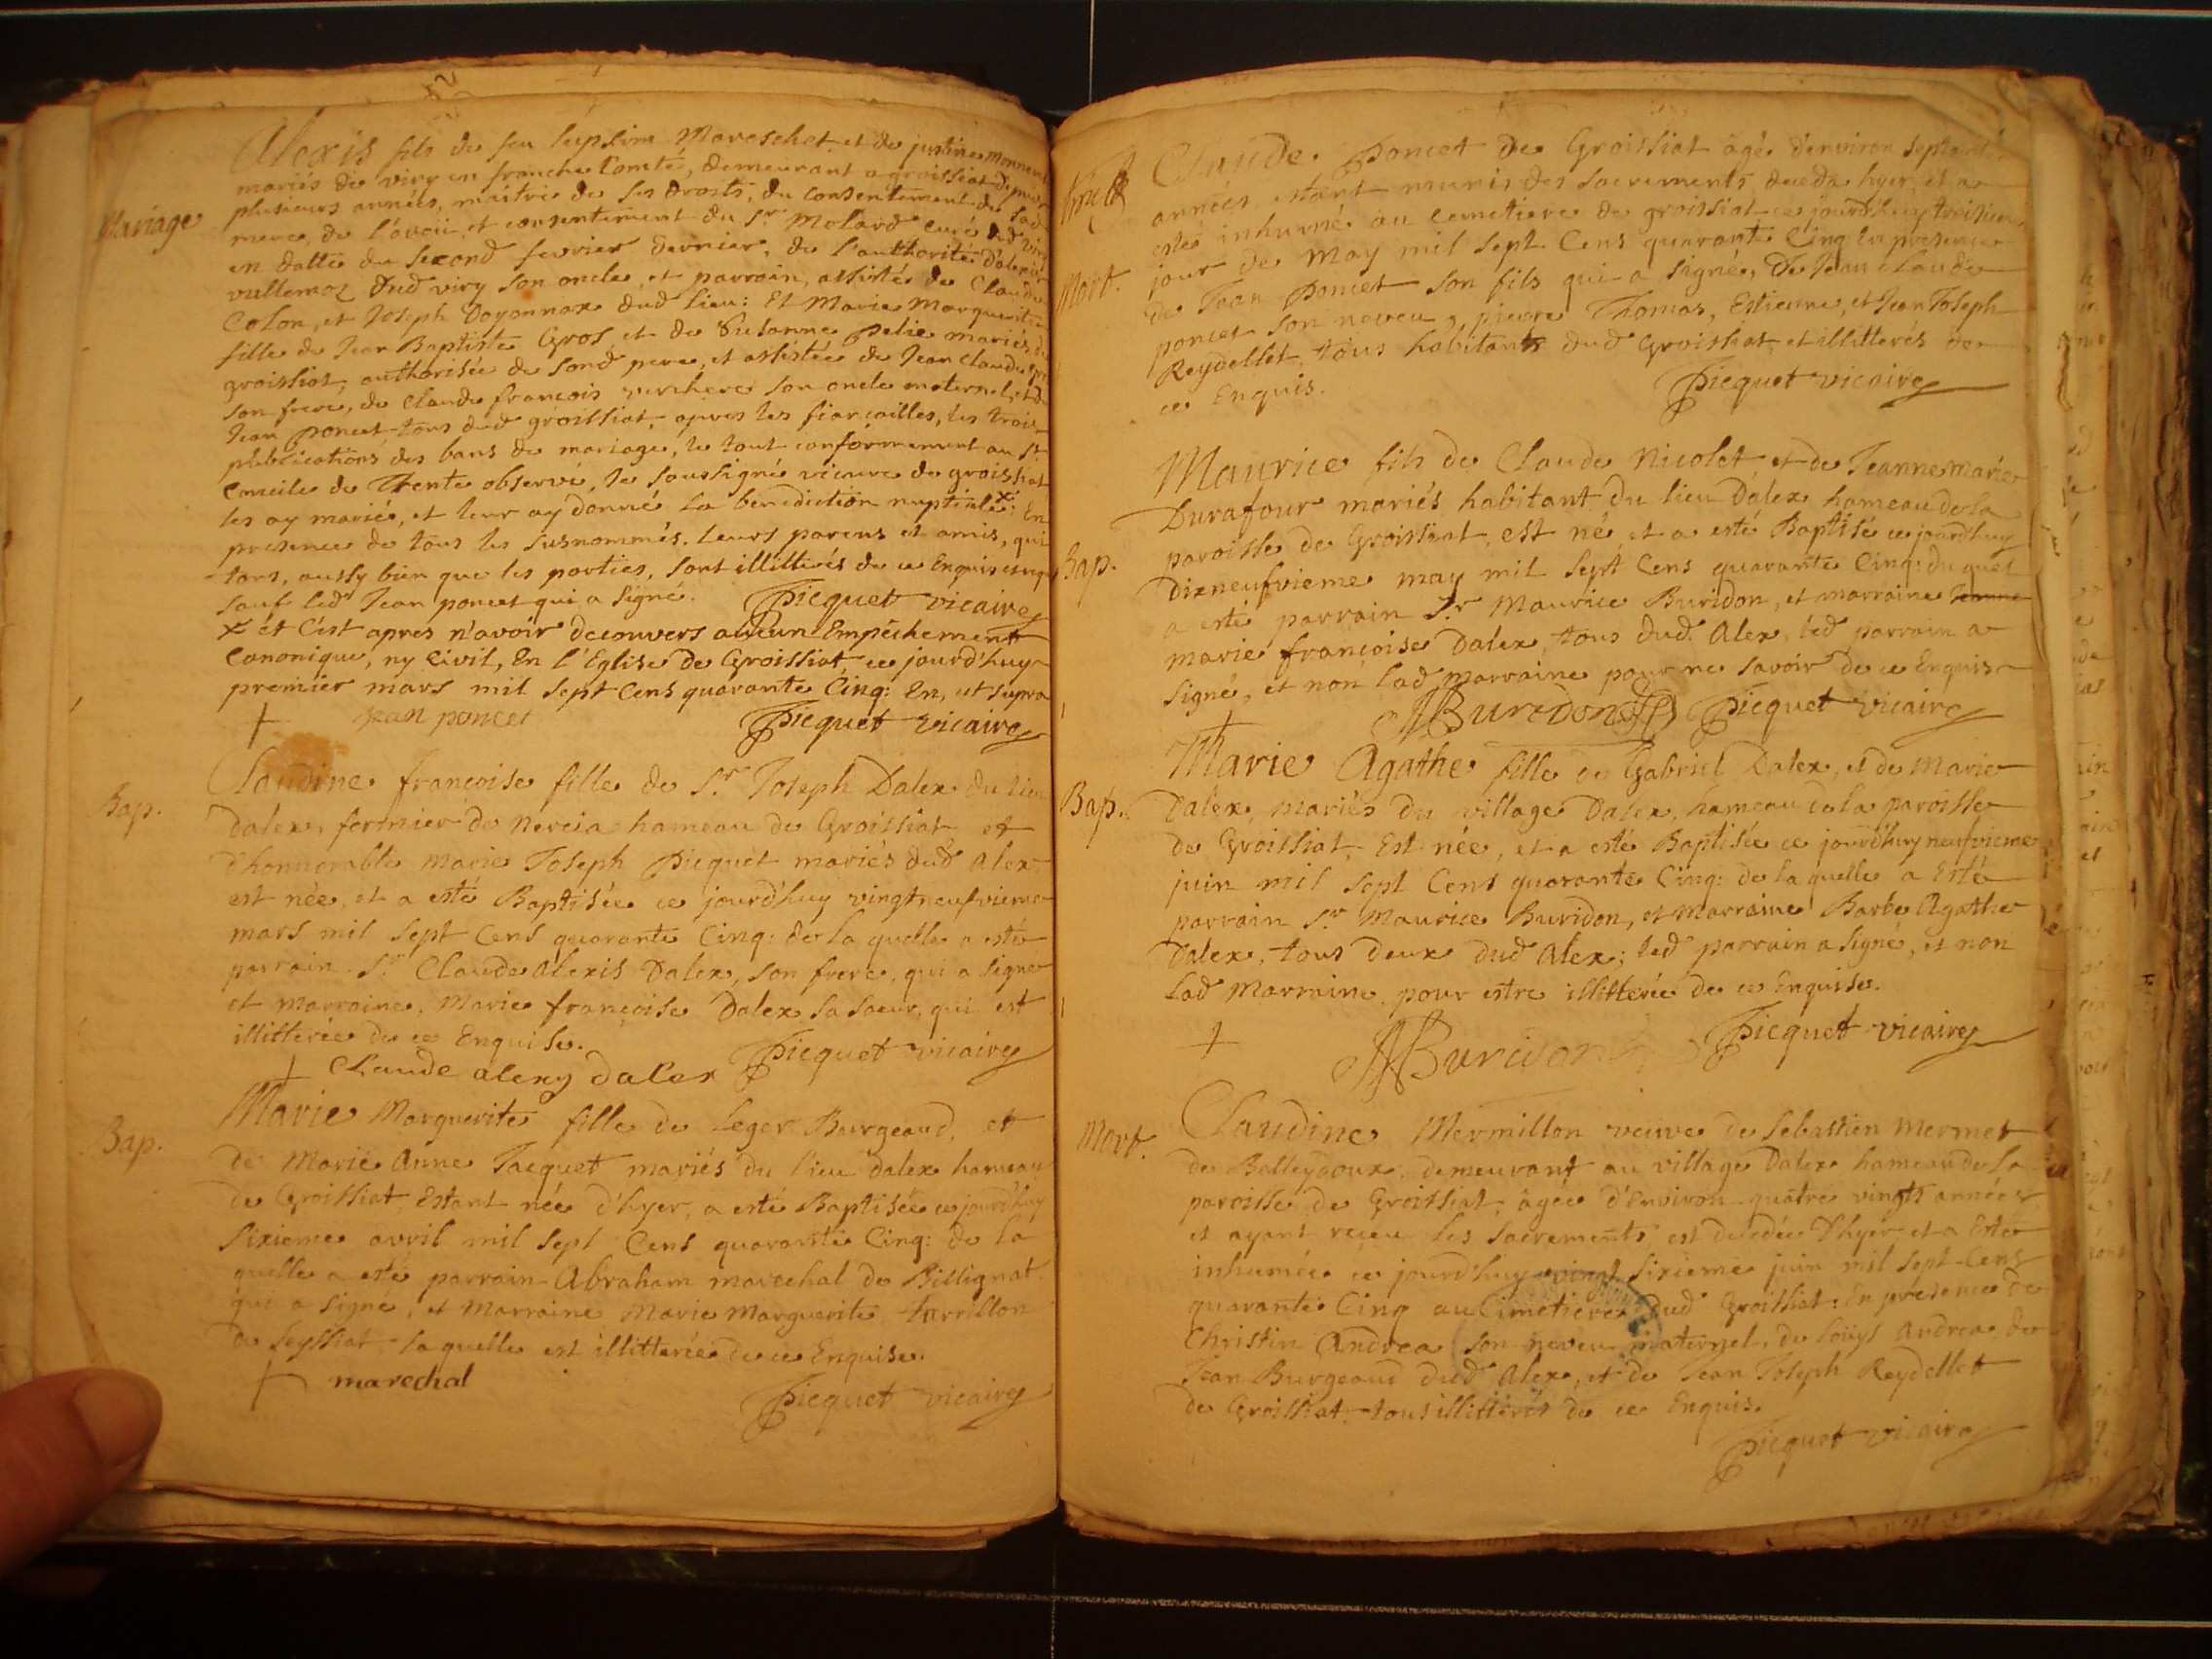 Mariage
Alexis fils de feu Mareschet et de justine Monnen
mariés de viry en franche Comté, demeurant a groissiat depuis
plusieurs années, maitrie de ses droits, du consentement de sad
mere, de l'avoii et consentement du Sr Molard curé dud viry
en datte du second fevrier dernier, de l'authorité d'alexis
vullemoz dud viry son oncle, et parrain, assistés de Claude
Colon, et Joseph Doyonnax dud lieu: Et Marie Marguerite
fille de Jean Baptiste Gros, et de Susanne Pelie mariés, de
groissiat, authorisée de sond pere, et assistée de Jean Claude gros
son frere, de Claude francois verchere son oncle maternel, et de
Jean poncet tous dud groissiat, apres les fiancailles, les trois
publications des bans de mariage, le tout conformement au St
Concile de Trente observé, Je soussigné vicaire de groissiat
les ay mariés, et leur ay donné la benediction nuptiale x: En
presence de tous les susnommés. leurs parens et amis, qui
tous, aussy bien que les parties, sont illitterés de ce Enquis
sauf led Jean poncet qui a signé. Picquet vicaire
x et c'est apres n'avoir decouvers aucun Empêchement
Canonique, ny Civil, En l'Eglise de Groissiat ce jourd'huy
premier mars mil sept Cens quarante Cinq: En, ut supra
+ jean poncet Picquet vicaire
Bap.
Claudine francoise fille de Sr. Joseph Dalex du lieu
Dalex, fermier de Nercia hameau de Groissiat et
d'honnorable Marie Joseph Picquet mariés dud Alex
est née, et a esté Baptisée ce jourd'huy vingtneufvieme
mars mil sept Cens quarante Cinq: de la quelle a esté
parrain Sr Claude Alexis Dalex, son frere, qui a signe
et Marraine. Marie françoise Dalex sa soeur, qui est
illitterée de ce Enquise.
+ Claude alexy dalex Picquet vicaire
Bap.
Marie Marguerite fille de Leger Burgeaud, et
de Marie Anne Jacquet mariés du lieu dalex hameau
de Groissiat, Estant née d'hyer, a esté Baptisée ce jourd'huy
sixieme avril mil sept Cens quarante Cinq: de la
quelle a esté parrain Abraham marechal de Billignat
qui a signé, et Marraine Marie Marguerite tarrillon
de Seyssiat, la quelle est illitterée de ce Enquise.
+ marechal
Picquet vicaire
Mort.
Claude Poncet de Groissiat âgé d'environ septante
années, estant munis des sacrements, decedé hyer, et a
esté inhumé au cemetiere de groissiat ce jourd'huy troisieme
jour de May mil sept Cens quarante Cinq En presence
de Jean Poncet son fils qui a signé, de Jean Claude
poncet son neveu, pierre Thomas, Estienne, et Jean Joseph
Reydellet, tous habitants dud Groissiat, et illitterés de
ce Enquis.
Picquet vicaire
Bap.
Maurice fils de Claude Nicolet et de Jeanne marie
Durafour mariés habitant du lieu Dalex hameau de la
paroisse de Groissiat, est né et a esté Baptisé ce jourd'huy
Dixneufvieme may mil sept Cens quarante Cinq: du quel
a esté parrain Sr Maurice Buridon, et marraine Jeanne
marie françoise Dalex, tous dud. Alex, led parrain a
signé, et non lad marraine pour ne savoir de ce Enquise
+ MBuridon Picquet vicaire
Bap.
Marie Agathe fille de Gabriel Dalex, et de Marie
Dalex, mariés du village Dalex, hameau de la paroisse
de Groissiat, Est née, et a esté Baptisée ce jourd'huy neufvieme
juin mil sept Cens quarante Cinq: de la quelle a Esté
parrain Sr. Maurice Buridon, et Marraine Barbe Agathe
Dalex, tous deux dud Alex; led parrain a signé, et non
lad Marraine, pour estre illitterée de ce Enquise.
+ MBuridon Picquet vicaire
Mort.
Claudine Mermillon veuve de Sebastien Mermet
de Belleydoux, demeurant au village Dalex hameau de la
paroisse de Groissiat, âgée d'Environ quatre vingts années
et ayant reçeu les sacrements est decedée d'hyer et a Esté
inhumée ce jourd'huy vingt sixieme juin mil sept Cens
quarante Cinq au Cimetiere dud Groissiat: En présence de
Christin Andrea son neveu maternel, de loüys Andrea de
Jean Burgeaud dud Alex, et de Jean Joseph Reydellet
de Groissiat, tous illitterés de ce Enquis.
Picquet vicaire